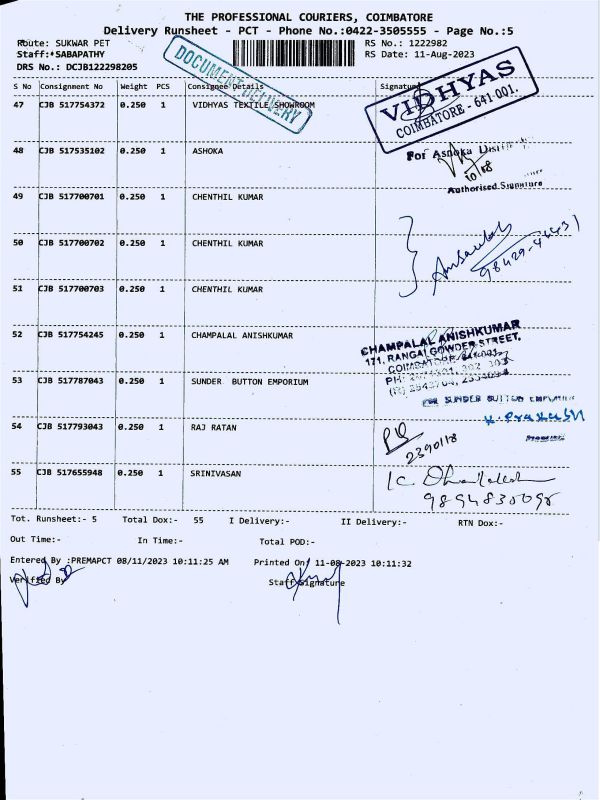 THE PROFESSIONAL COURIERS, COIMBATORE
Delivery Runsheet - PCT - Phone No.:0422-3505555 - Page No.:5
Route: SUKWAR PET RS No.: 1222982
Staff:*SABAPATHY RS Date: 11-Aug-2023
DRS No.: DCJB122298205
DOCUMENT DELIVERY
S No Consignment No Weight PCS Consignee Details Signature
47 CJB 517754372 0.250 1 VIDHYAS TEXTILE SHOWROOM
VIDHYAS
COIMBATORE - 641 001.
48 CJB 517535102 0.250 1 ASHOKA
For Ashoka
10/08
Authorised Signature
49 CJB 517700701 0.250 1 CHENTHIL KUMAR
50 CJB 517700702 0.250 1 CHENTHIL KUMAR
51 CJB 517700703 0.250 1 CHENTHIL KUMAR
52 CJB 517754245 0.250 1 CHAMPALAL ANISHKUMAR
CHAMPALAL ANISHKUMAR
171, RANGAI GOWDER STREET,
53 CJB 517787043 0.250 1 SUNDER BUTTON EMPORIUM
FOR SUNDER BUTTON EMPORIUM
54 CJB 517793043 0.250 1 RAJ RATAN
55 CJB 517655948 0.250 1 SRINIVASAN
Tot. Runsheet:- 5 Total Dox:- 55 I Delivery:- II Delivery:- RTN Dox:-
Out Time:- In Time:- Total POD:-
Entered By :PREMAPCT 08/11/2023 10:11:25 AM Printed On: 11-08-2023 10:11:32
Verified By Staff Signature